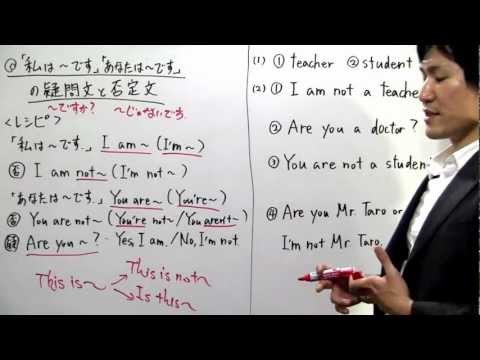 ◎「私は～です」「あなたは～です」
の疑問文と否定文
～ですか? ～じゃないです。
<レシピ>
「私は～です。」 I am ~ (I'm ~)
否 I am not ~ (I'm not ~)
「あなたは～です。」 You are ~ (You're ~)
否 You are not ~ (You're not ~ / You aren't ~)
疑 Are you ~ ? - Yes, I am. / No, I'm not.
This is ~
This is not ~
Is this ~
(1) ① teacher ② student
(2) ① I am not a teache
② Are you a doctor?
③ You are not a studen
④ Are you Mr. Taro or
I'm not Mr. Taro.